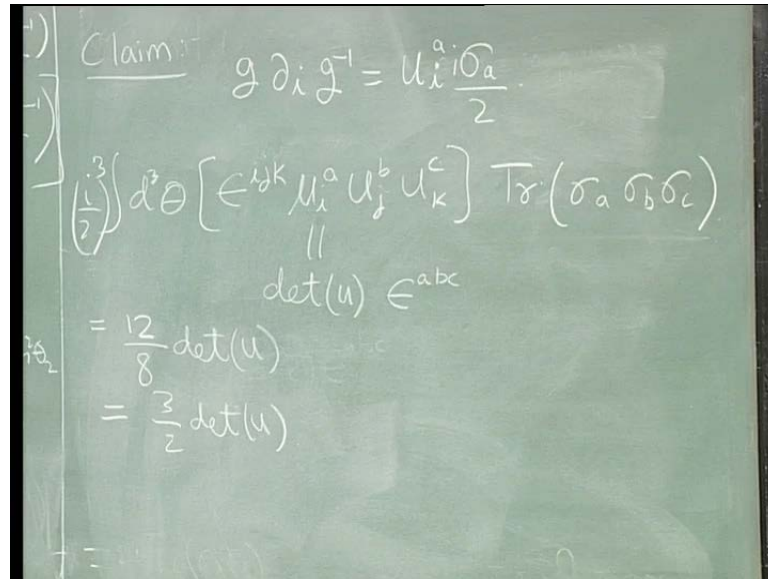 Claim:
g ∂_i g^{-1} = u_i^a iσ_a/2.
(i/2)^3 ∫ d^3θ [ ϵ^{ijk} u_i^a u_j^b u_k^c ] Tr (σ_a σ_b σ_c)
||
det(u) ϵ^{abc}
= 12/8 det(u)
= 3/2 det(u)